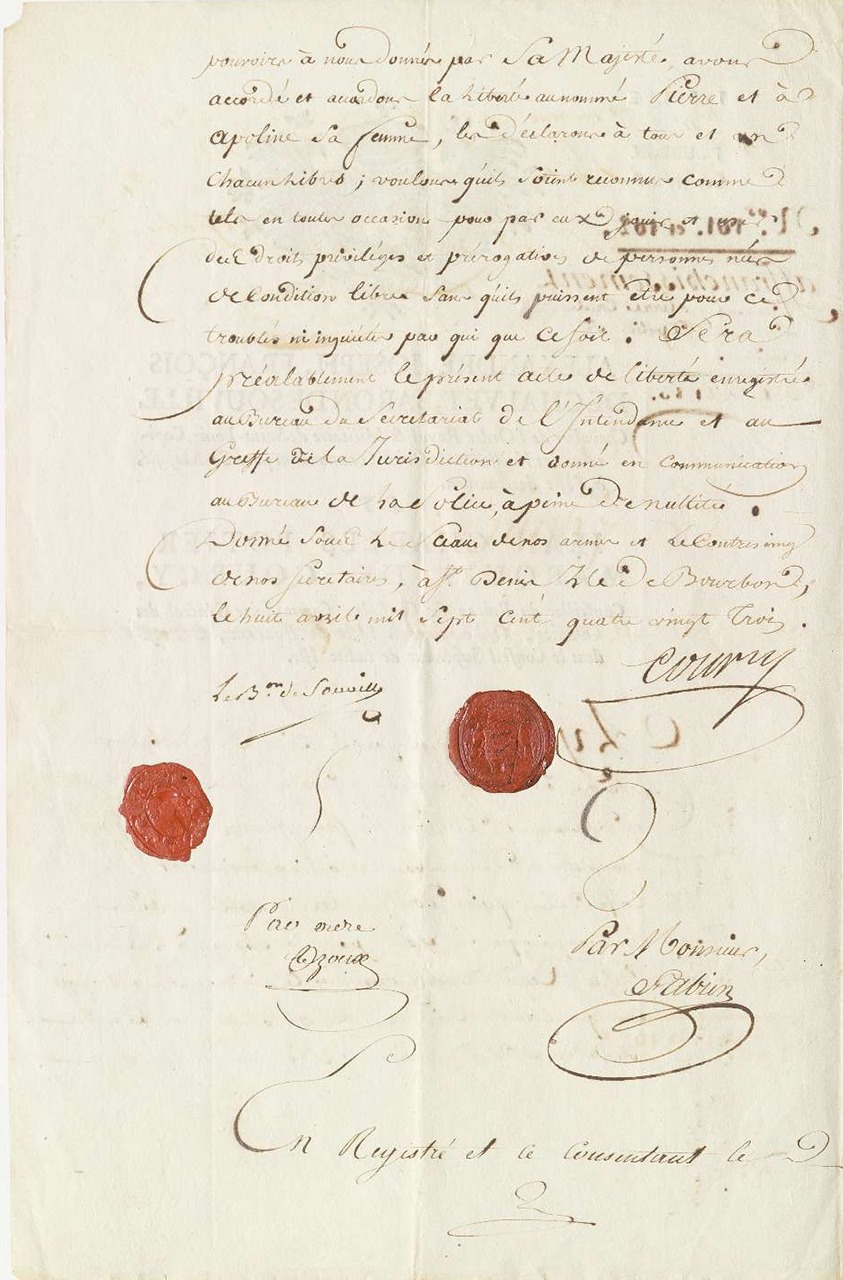 pouvoirs à nous donnés par Sa Majesté, avons
accordé et accordons la liberté au nommé Pierre et à
apoline Sa femme, les déclarons à tous et un
Chacun Libres ; voulons qu'ils soient reconnus comme
tels en toutes occasions pour par eux jouir et user
des droits privilèges et prérogatives de personnes nées
de Condition libre Sans qu'ils puissent être pour ce
troublés ni inquiétés par qui que ce soit. Sera
préalablement le présent acte de liberté enregistré
au Bureau du Secretariat de l'Intendance et au
Greffe de la Jurisdiction et donné en Communication
au Bureau de La Police, à peine de nullité.
Donné Sous Le Sceau de nos armes et Le Contreseing
de nos Secretaires, à St. Denis Isle de Bourbon,
le huit avril mil Sept Cent quatre vingt Trois.
Courcy
Le B.on de Souville
Par Monsieur,
En Registré et ce Consentant le